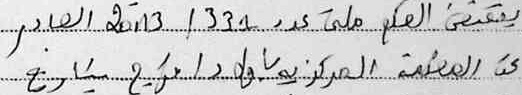 بمقتضى الحكم ملف عدد 331 / 2013 الصادر
عن المحكمة المركزية ب بتاريخ